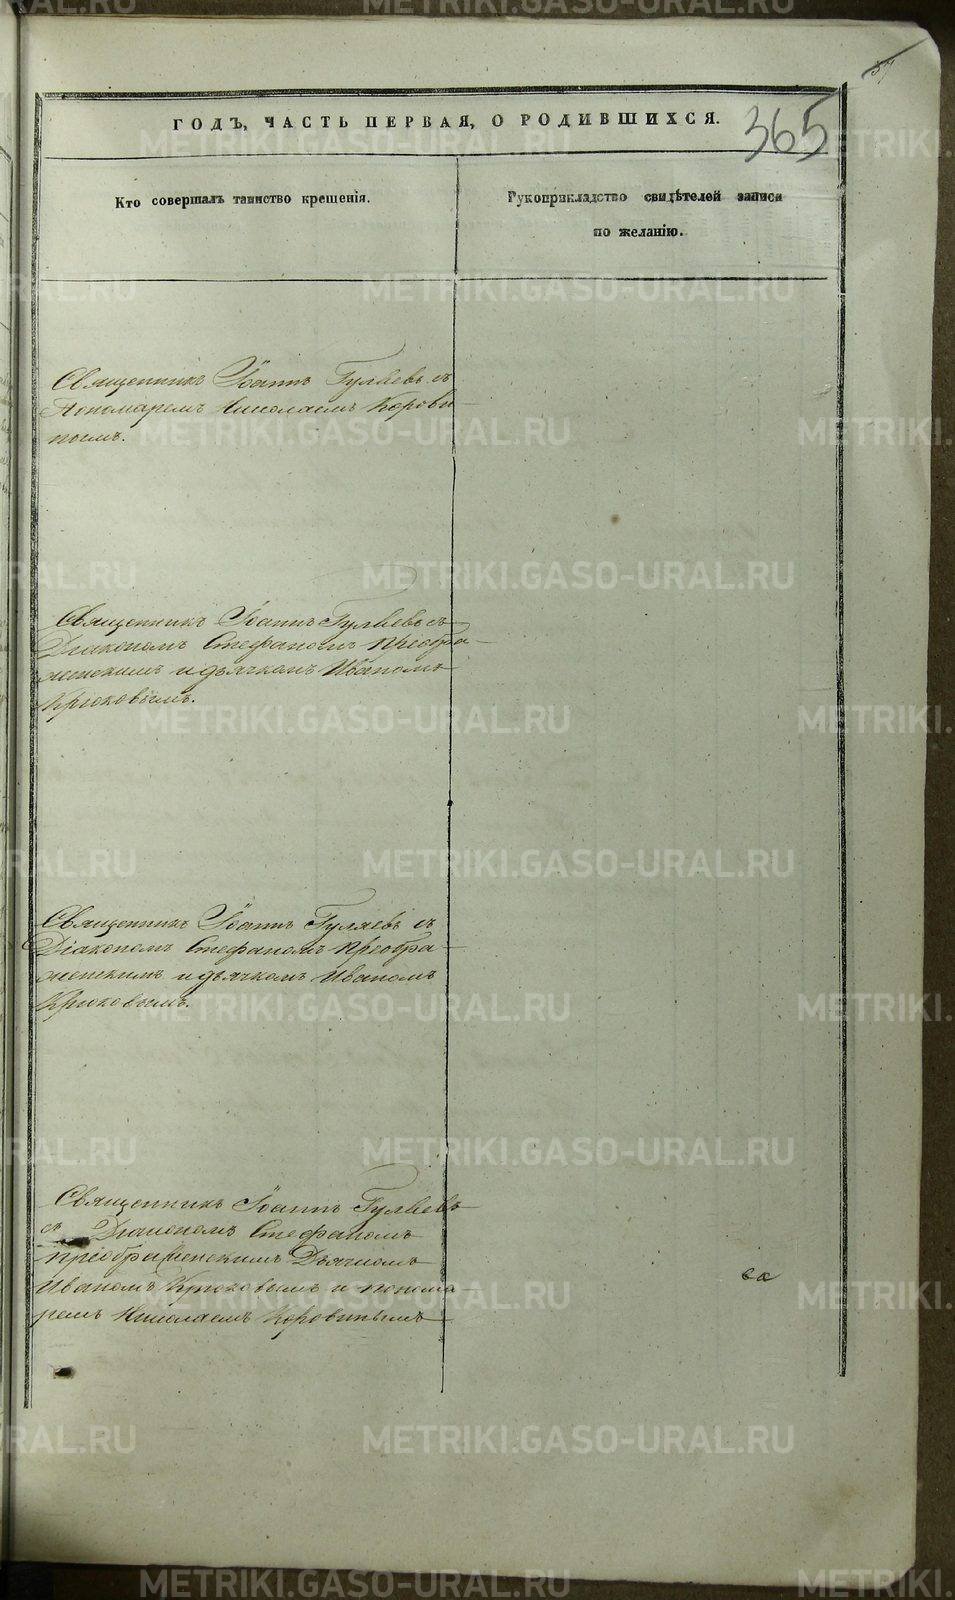 57
365
ГОДЪ, ЧАСТЬ ПЕРВАЯ, О РОДИВШИХСЯ.
Кто совершалъ таинство крещенія.
Рукоприкладство свидѣтелей записи
по желанію.
Священникъ Іоаннъ Гуляевъ съ
Пономаремъ Николаемъ Корови
нымъ.
Священникъ Іоаннъ Гуляевъ съ
Діакономъ Стефаномъ Преобра
женскимъ и дьячкомъ Иваномъ
Крюковымъ.
Священникъ Іоаннъ Гуляевъ съ
Діакономъ Стефаномъ Преобра
женскимъ и дьячкомъ Иваномъ
Крюковымъ.
Священникъ Іоаннъ Гуляевъ
съ Діакономъ Стефаномъ
Преображенскимъ Дьячкомъ
Иваномъ Крюковымъ и понома
ремъ Николаемъ Коровинымъ
METRIKI.GASO-URAL.RU